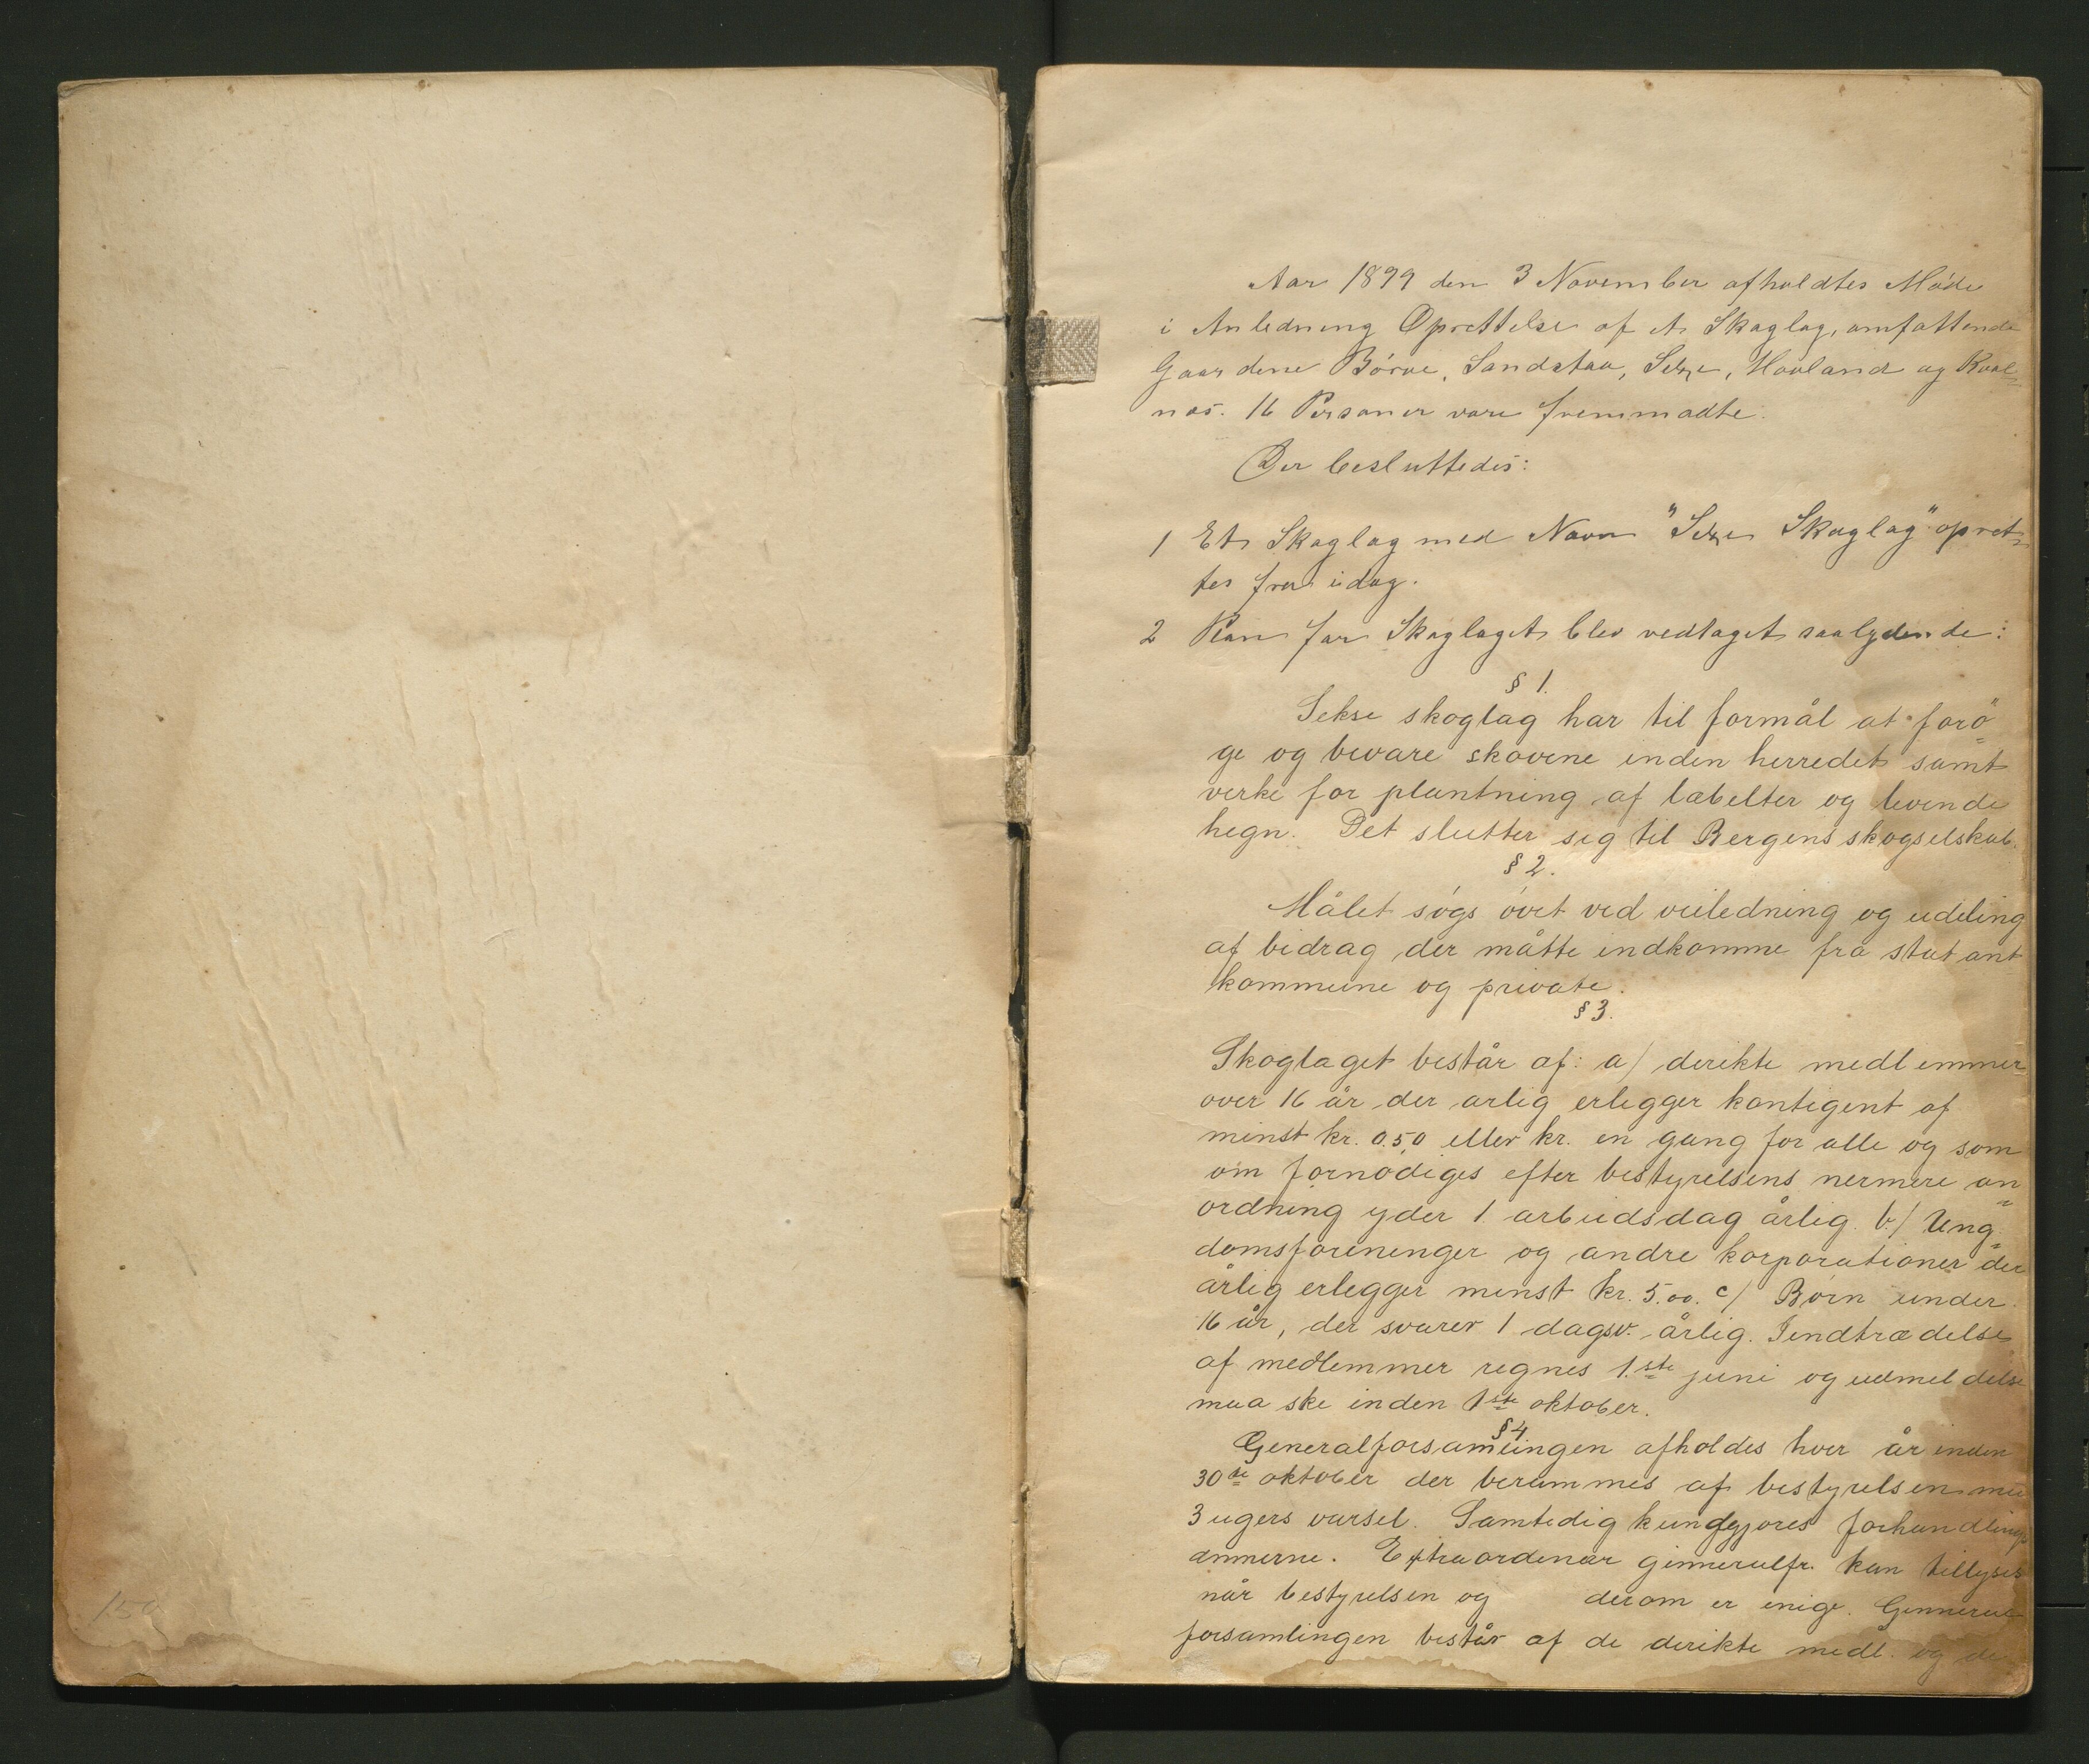 Aar 1899 den 3 November afholdtes Møde
i Anledning Oprettelse af et Skoglag, omfattende
Gaardene Børve, Sandstaa, Sexe, Hovland og Kval=
nes. 16 Personer vare fremmødte.
Der besluttedes:
1 Et Skoglag med Navn "Sexe Skoglag" opret=
tes fra idag.
2 Plan for Skoglaget blev vedtaget saalydende:
§ 1.
Sekse skoglag har til formål at forö=
ge og bevare skovene inden herredet samt
verke for plantning af læbelter og levende
hegn. Det slutter sig til Bergens skogselskab.
§ 2.
Målet søgs øvet ved veiledning og uddeling
af bidrag der måtte indkomme fra stat amt
kommune og private.
§ 3.
Skoglaget består af: a/ derikte medlemmer
over 16 år der arlig erlegger kontigent af
minst kr. 0.50 eller kr. en gang for alle og som
om fornødiges efter bestyrelsens nermere an=
ordning yder 1. arbeidsdag årlig. b/ Ung=
domsforeninger og andre korporationer der
årlig erlegger minst kr. 5.00. c/ Børn under
16 år, der svarer 1 dagsv. årlig. Iendtrædelse
af medlemmer regnes 1.ste juni og udmeldelse
maa ske inden 1ste oktober.
§ 4
Generalforsamlingen afholdes hver år inden
30te oktober der berammes af bestyrelsen med
3 ugers varsel. Samtedig kundgjøres forhandlings
ænmerne. Extraordenær ginneralfr. kan tillyses
når bestyrelsen og derom er enige. Ginneral
forsamlingen består af de derikte medl. og de
150